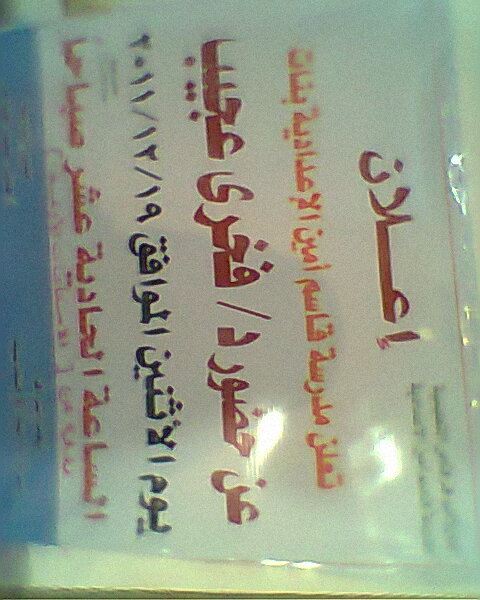 إعلان
تعلن مدرسة قاسم أمين الإعدادية بنات
عن حضور د/ فخرى عجيب
يوم الأثنين الموافق ٢٠١١/١٢/١٩
الساعة الحادية عشر صباحا